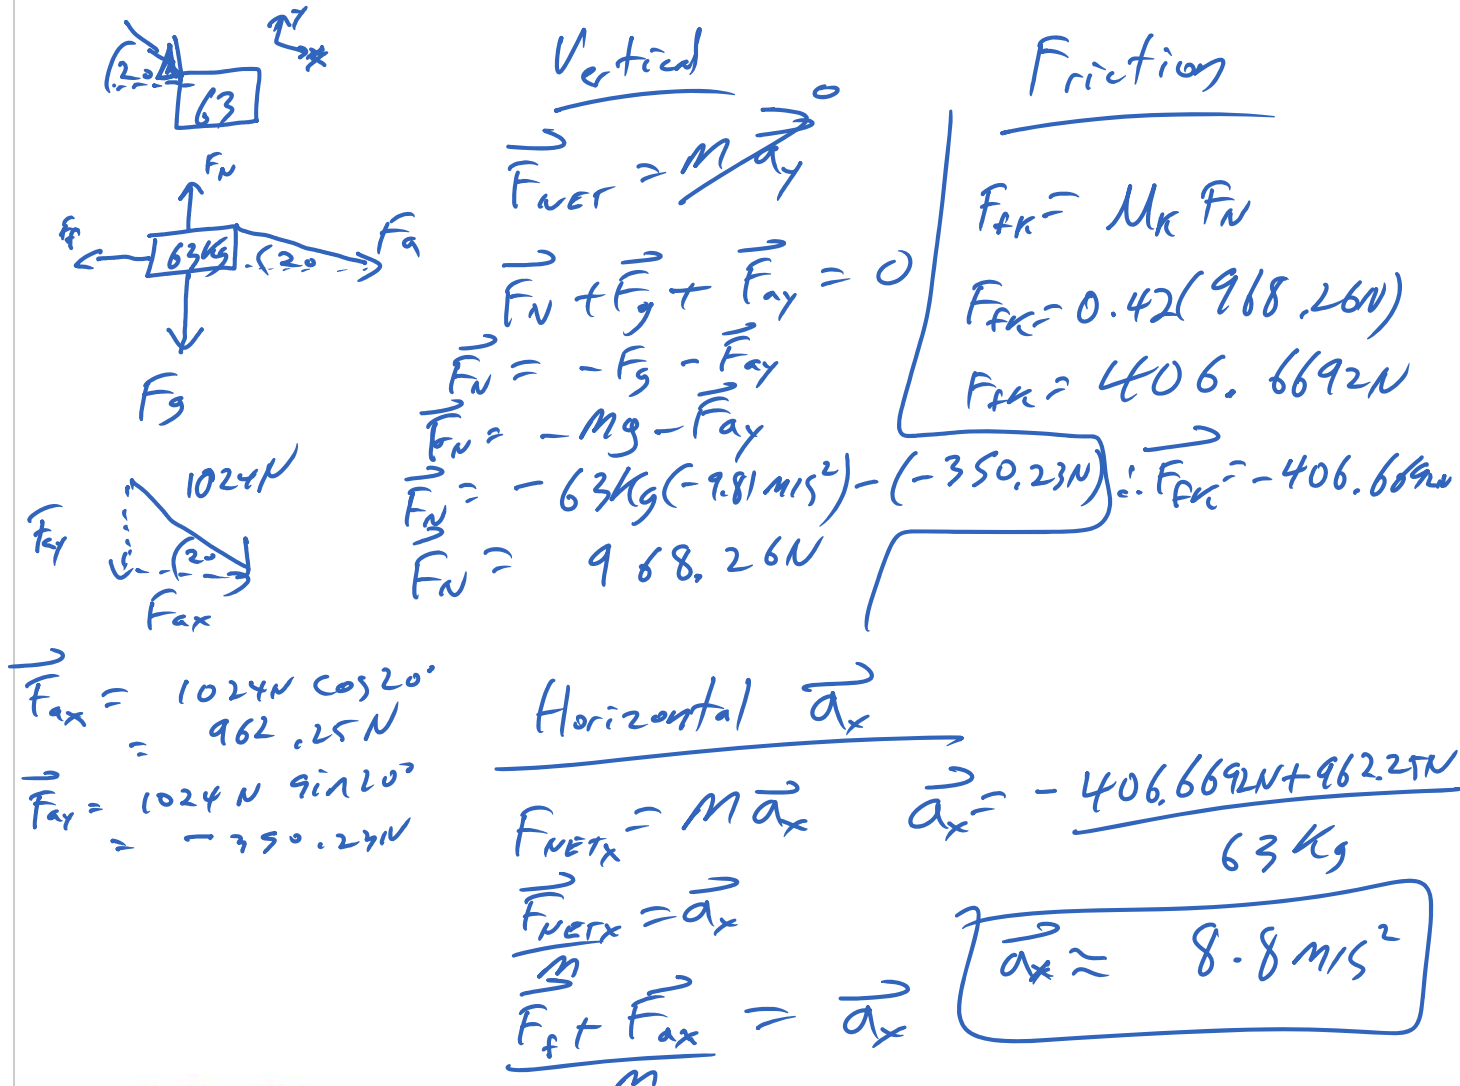 Y
X
20
63
F_N
F_f
63kg
20
F_a
F_g
1024N
F_ay
20
F_ax
F_ax = 1024N cos20°
= 962.25N
F_ay = 1024N sin20°
= -350.23N
Vertical
F_NET = m a_y 0
F_N + F_g + F_ay = 0
F_N = -F_g - F_ay
F_N = -mg - F_ay
F_N = -63kg(-9.81m/s²) - (-350.23N)
F_N = 968.26N
Friction
F_fk = μ_k F_N
F_fk = 0.42(968.26N)
F_fk = 406.6692N
∴ F_fk = -406.6692N
Horizontal a_x
F_NETx = m a_x
F_NETx / m = a_x
F_f + F_ax / m = a_x
a_x = -406.6692N + 962.25N / 63kg
a_x ≈ 8.8m/s²